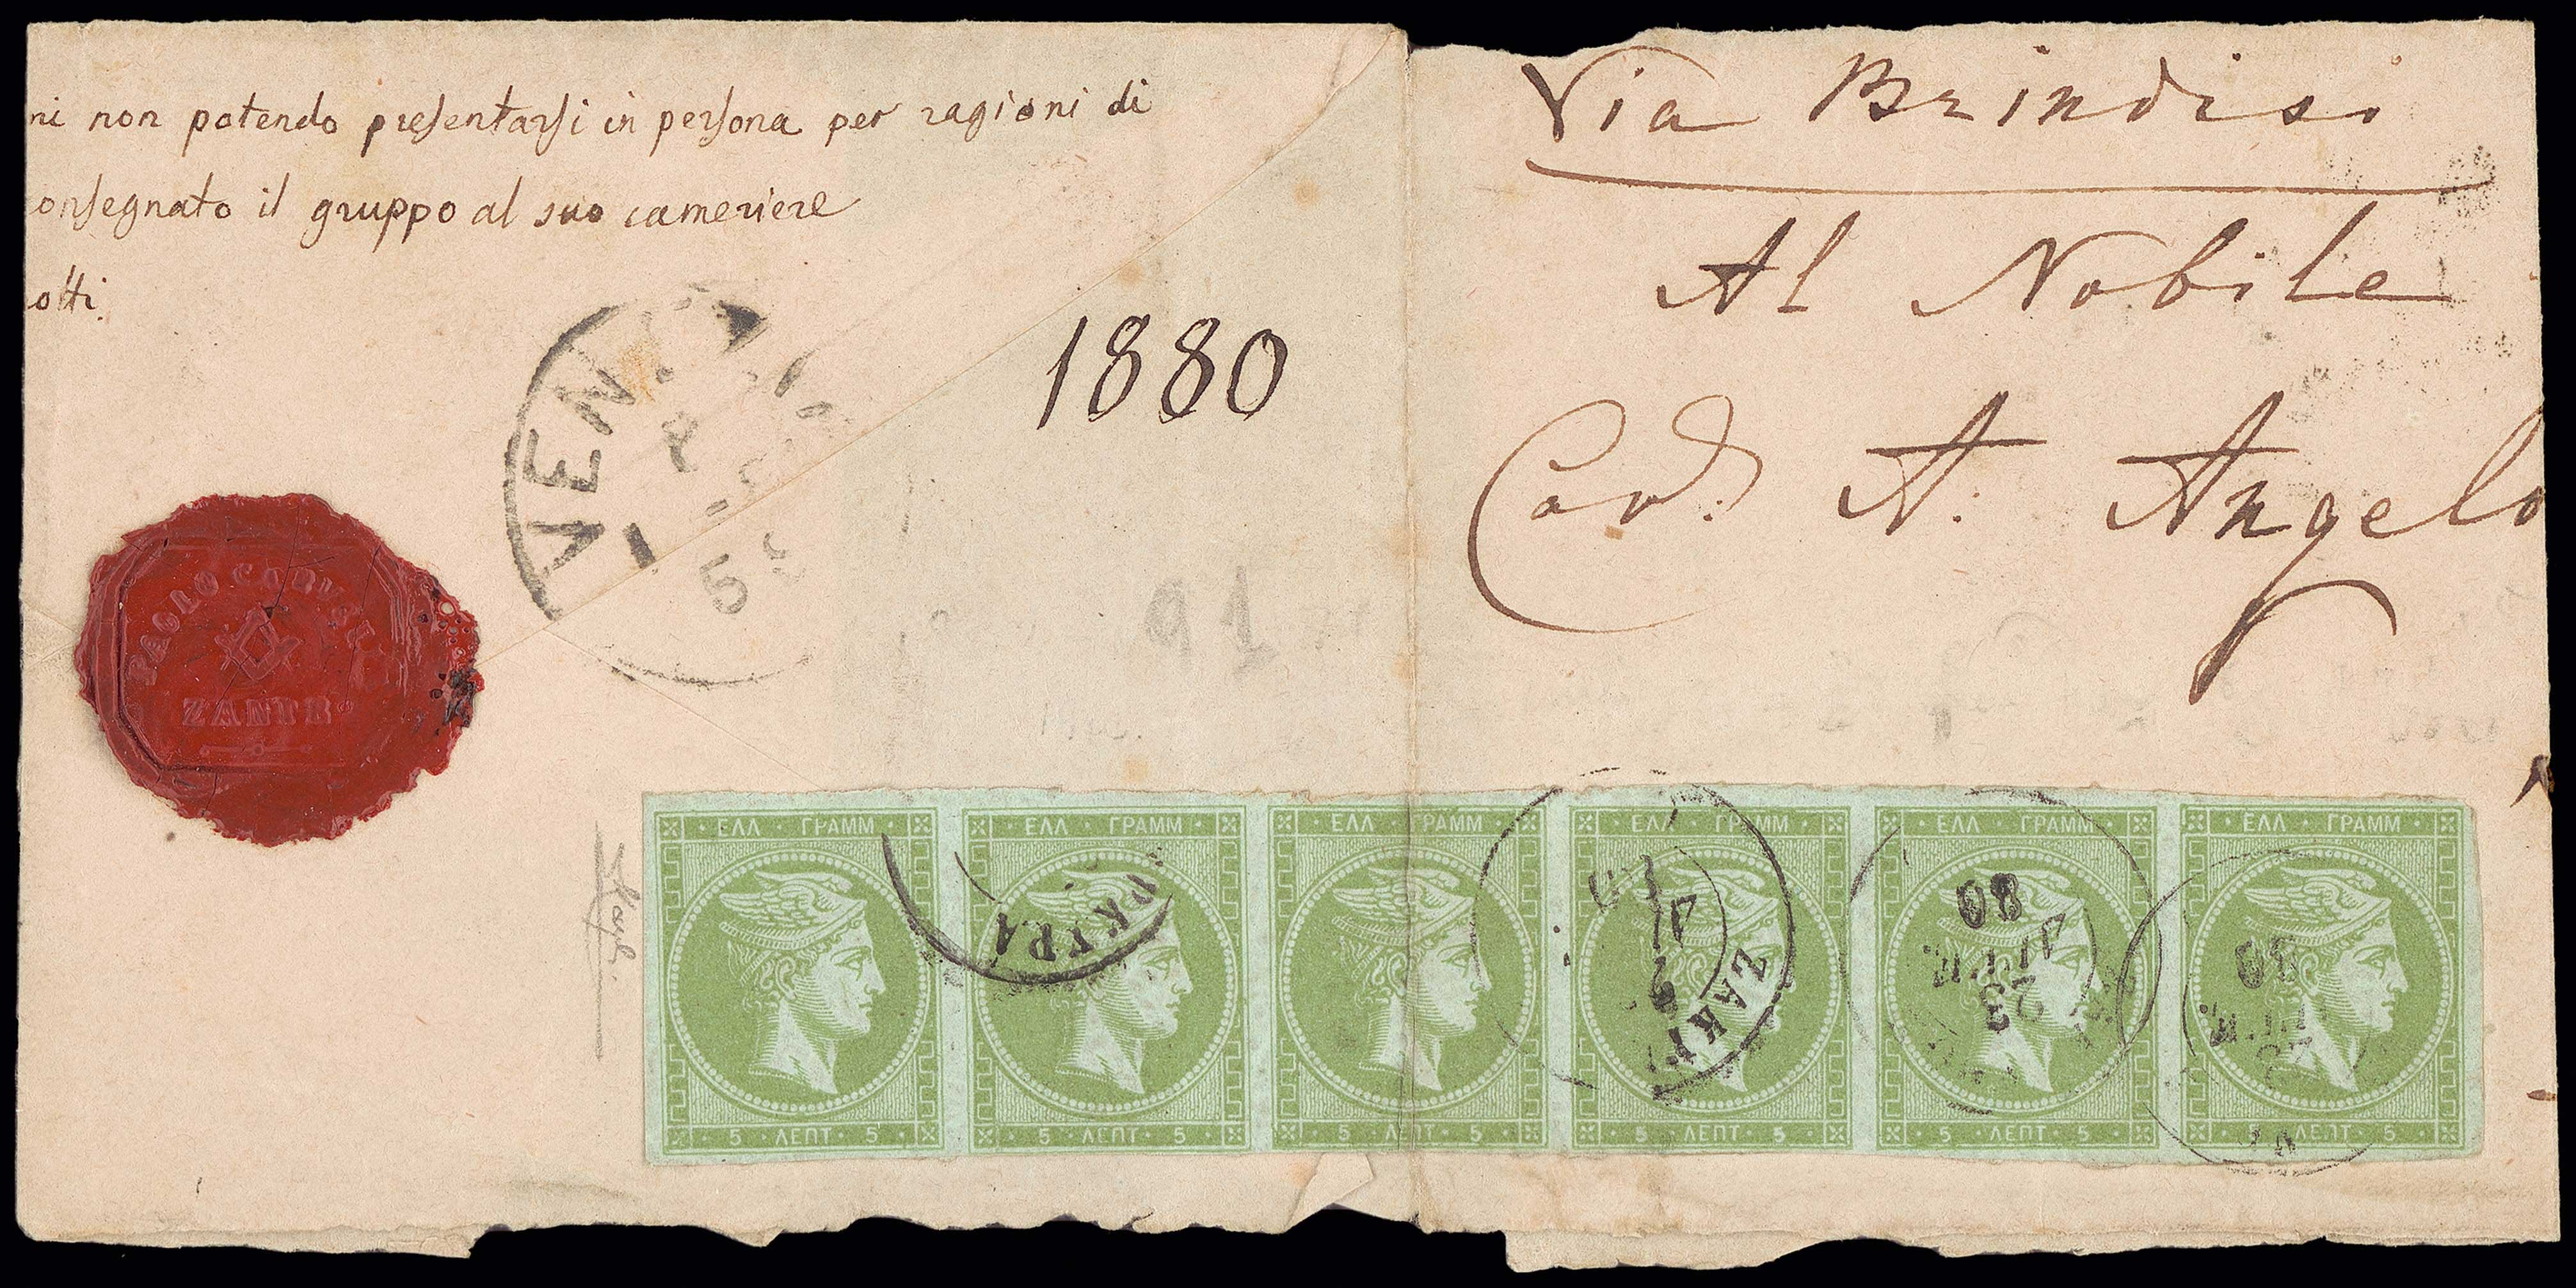 ni non potendo presentarsi in persona per ragioni di
onsegnato il gruppo al suo cameriere
otti.
1880
VEN
5
91
PAOLO
ZANTE
Via Brindisi
Al Nobile
Cav. A. Angelo
ΕΛΛ ΓΡΑΜΜ
5 ΛΕΠΤ 5
ΕΛΛ ΓΡΑΜΜ
5 ΛΕΠΤ 5
ΕΛΛ ΓΡΑΜΜ
5 ΛΕΠΤ 5
ΕΛΛ ΓΡΑΜΜ
5 ΛΕΠΤ 5
ΕΛΛ ΓΡΑΜΜ
5 ΛΕΠΤ 5
ΕΛΛ ΓΡΑΜΜ
5 ΛΕΠΤ 5
ΖΑΚΥ
23
80
80